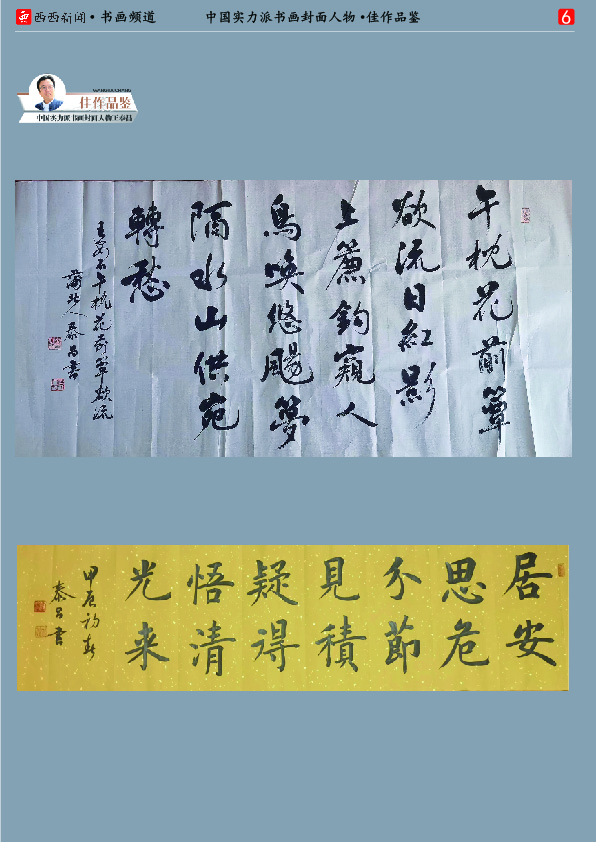 西西新闻 • 书画频道
中国实力派书画封面人物 • 佳作品鉴
6
佳作品鉴
中国实力派书画封面人物王泰昌
午枕花前簟
欲流日紅影
上簾鈎窺人
鳥喚悠颺夢
隔水山供宛
轉愁
王安石午枕花前簟欲流
泰昌書
居安
思危
分節
見積
疑得
悟清
光来
甲辰初春
泰昌書